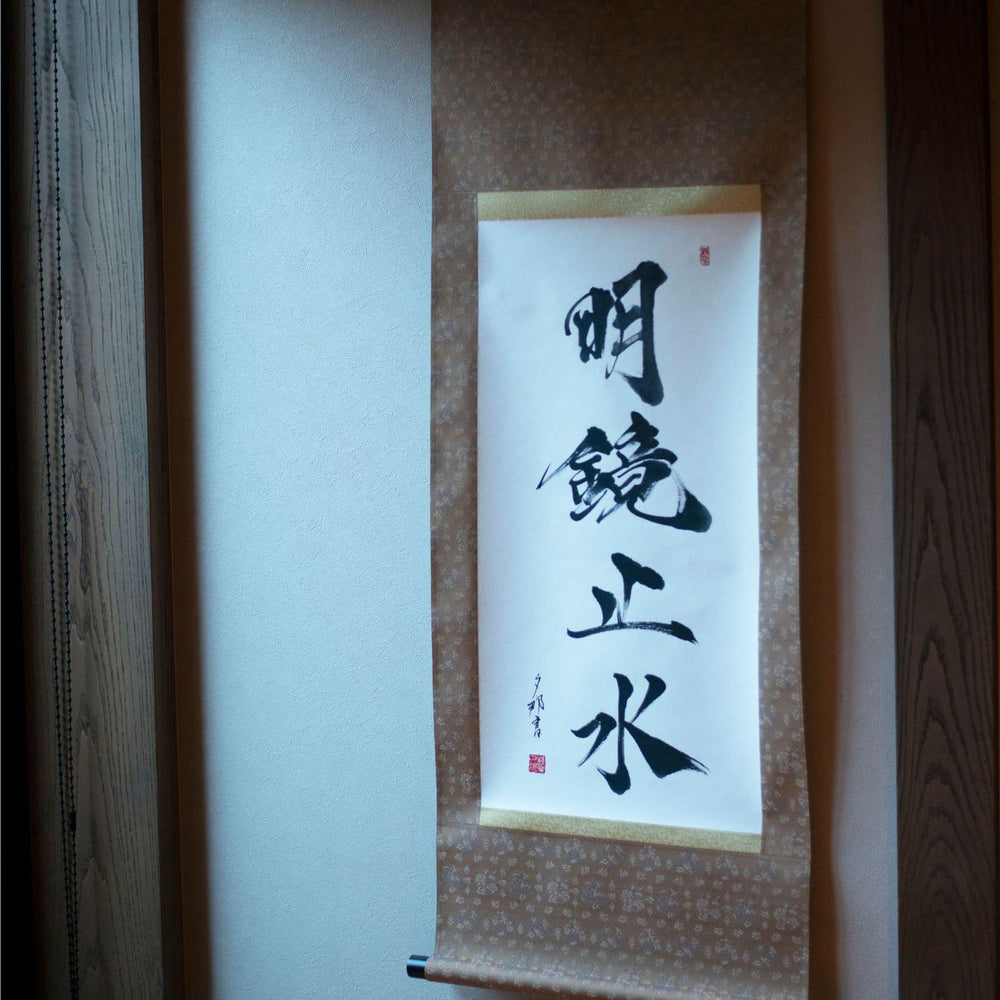 明鏡止水
夕那書